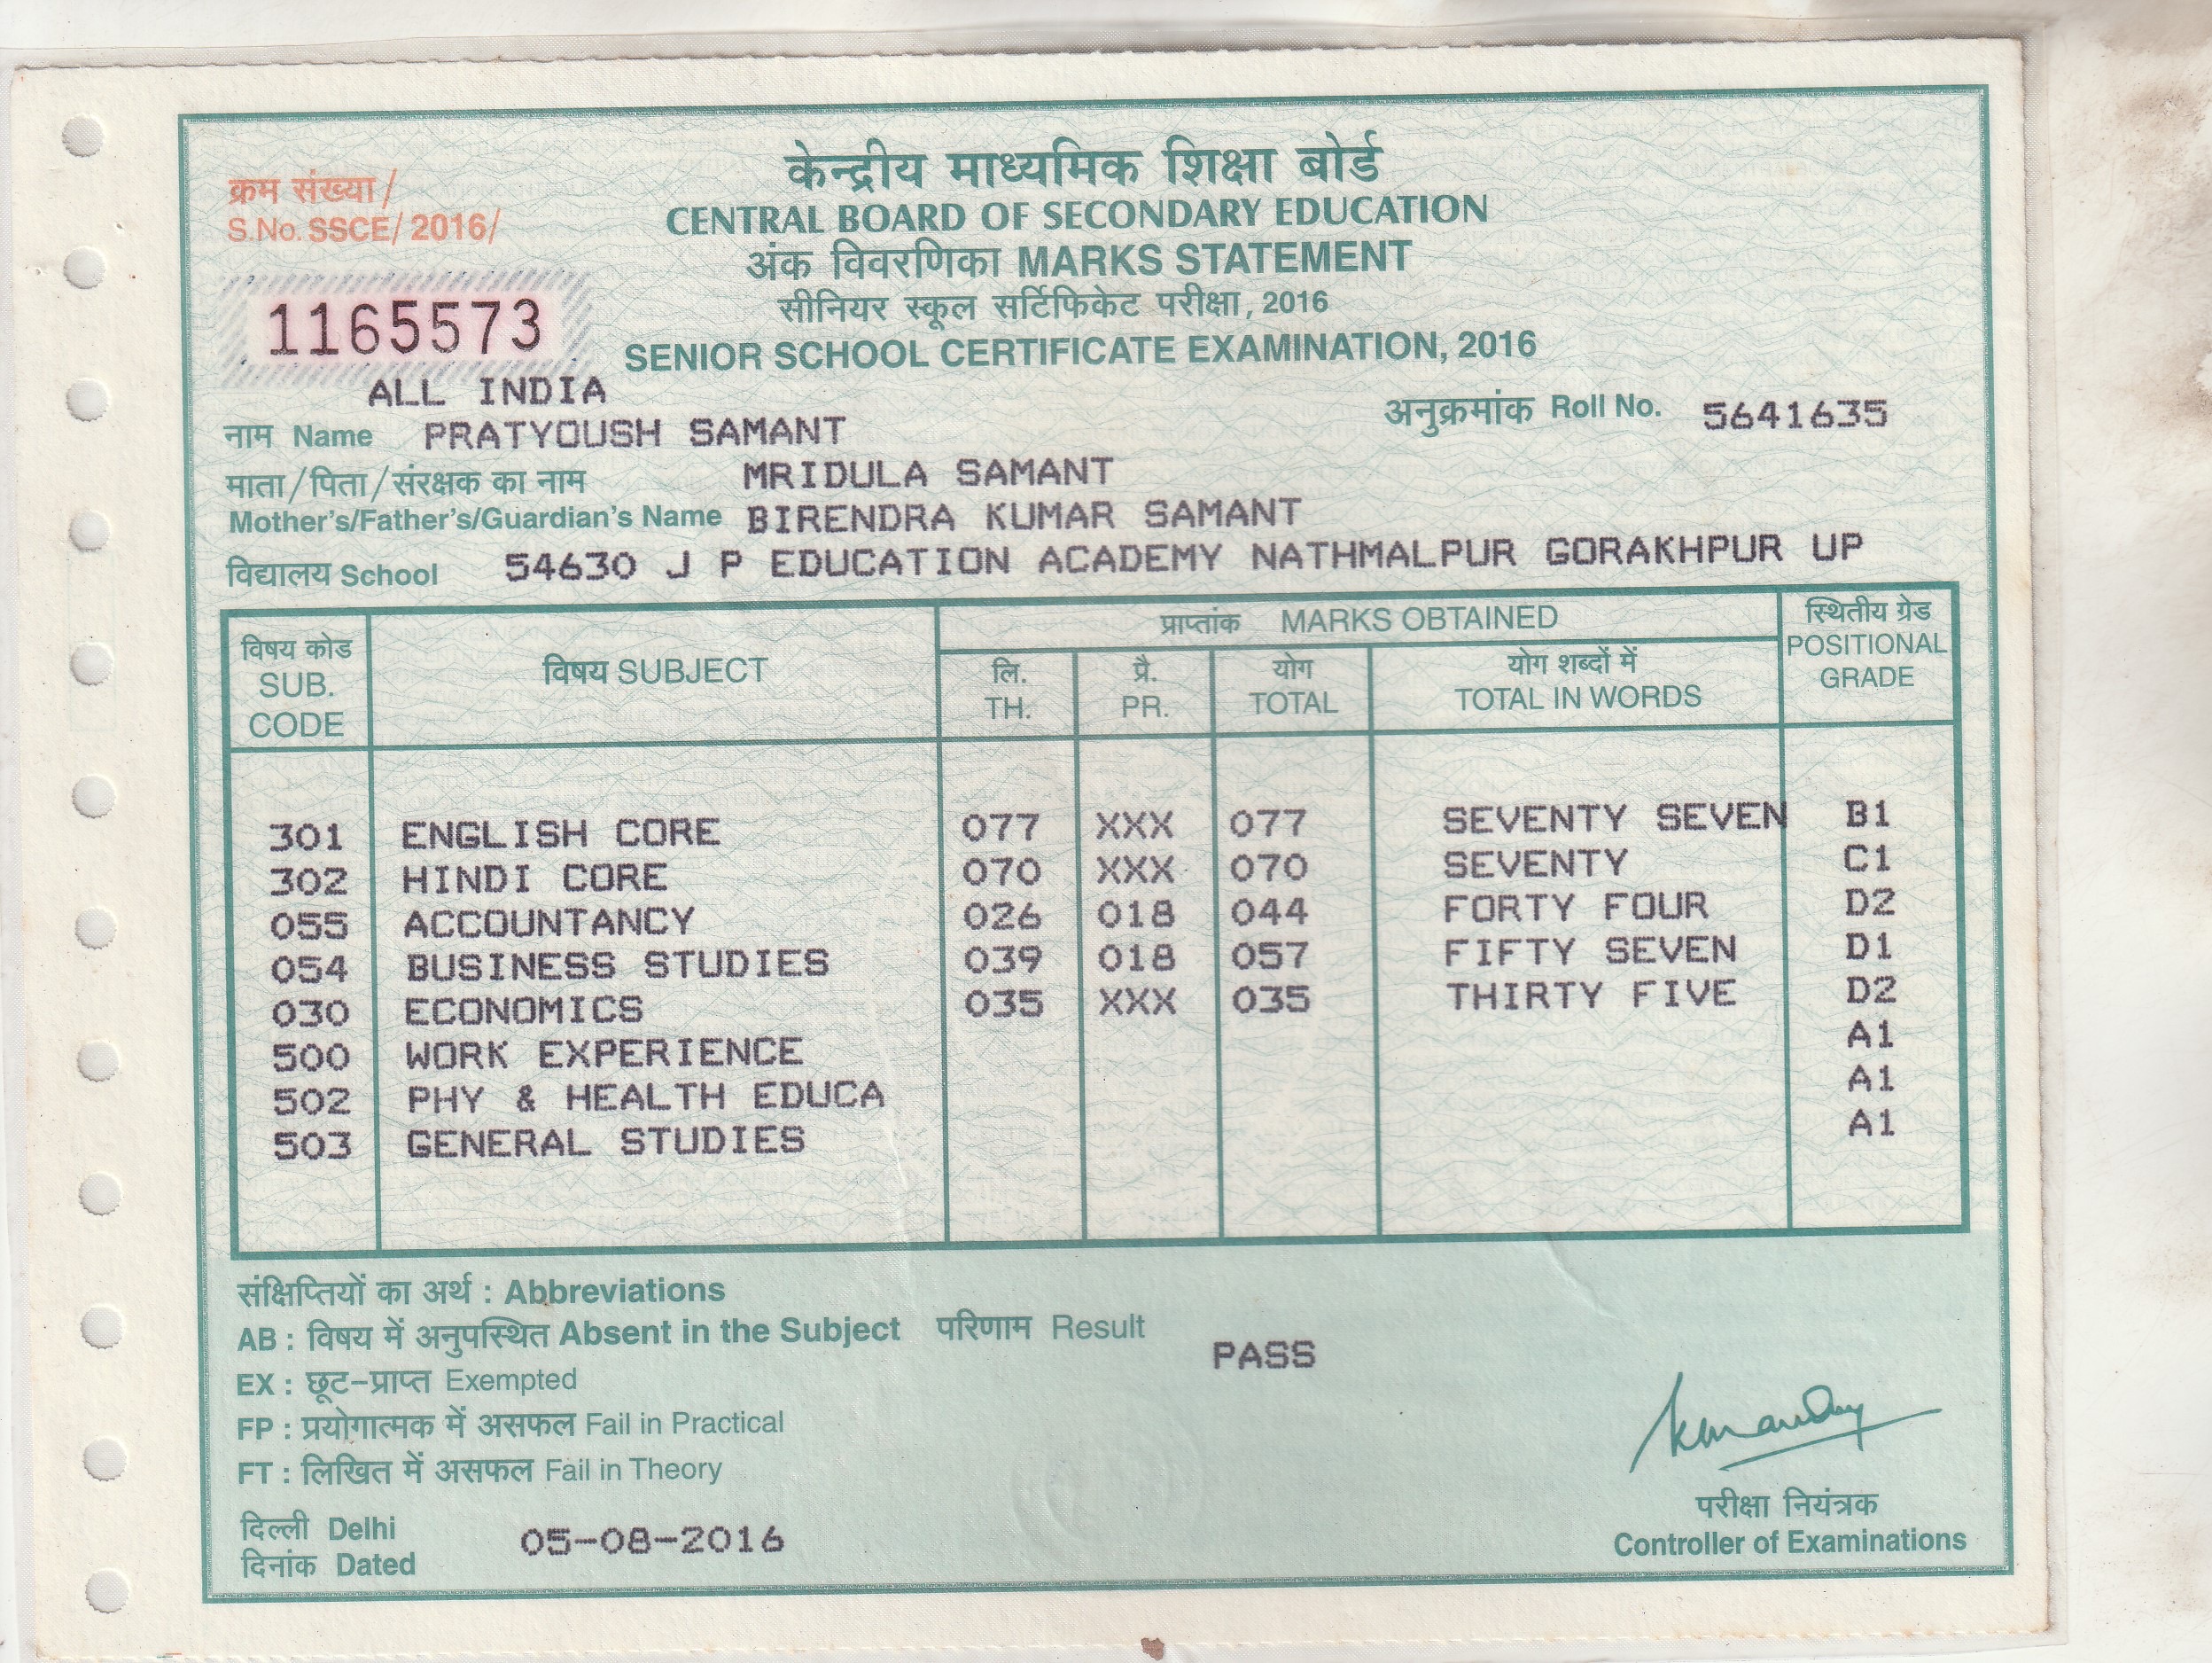 केन्द्रीय माध्यमिक शिक्षा बोर्ड
क्रम संख्या/
S.No. SSCE/ 2016/
CENTRAL BOARD OF SECONDARY EDUCATION
अंक विवरणिका MARKS STATEMENT
सीनियर स्कूल सर्टिफिकेट परीक्षा, 2016
1165573
SENIOR SCHOOL CERTIFICATE EXAMINATION, 2016
ALL INDIA
नाम Name PRATYOUSH SAMANT अनुक्रमांक Roll No. 5641635
माता/पिता/संरक्षक का नाम MRIDULA SAMANT
Mother's/Father's/Guardian's Name BIRENDRA KUMAR SAMANT
विद्यालय School 54630 J P EDUCATION ACADEMY NATHMALPUR GORAKHPUR UP
विषय कोड SUB. CODE विषय SUBJECT प्राप्तांक MARKS OBTAINED स्थितीय ग्रेड POSITIONAL GRADE
लि. TH. प्रै. PR. योग TOTAL योग शब्दों में TOTAL IN WORDS
301 ENGLISH CORE 077 XXX 077 SEVENTY SEVEN B1
302 HINDI CORE 070 XXX 070 SEVENTY C1
055 ACCOUNTANCY 026 018 044 FORTY FOUR D2
054 BUSINESS STUDIES 039 018 057 FIFTY SEVEN D1
030 ECONOMICS 035 XXX 035 THIRTY FIVE D2
500 WORK EXPERIENCE A1
502 PHY & HEALTH EDUCA A1
503 GENERAL STUDIES A1
संक्षिप्तियों का अर्थ : Abbreviations
AB : विषय में अनुपस्थित Absent in the Subject परिणाम Result PASS
EX : छूट-प्राप्त Exempted
FP : प्रयोगात्मक में असफल Fail in Practical
FT : लिखित में असफल Fail in Theory
दिल्ली Delhi
दिनांक Dated 05-08-2016
परीक्षा नियंत्रक
Controller of Examinations